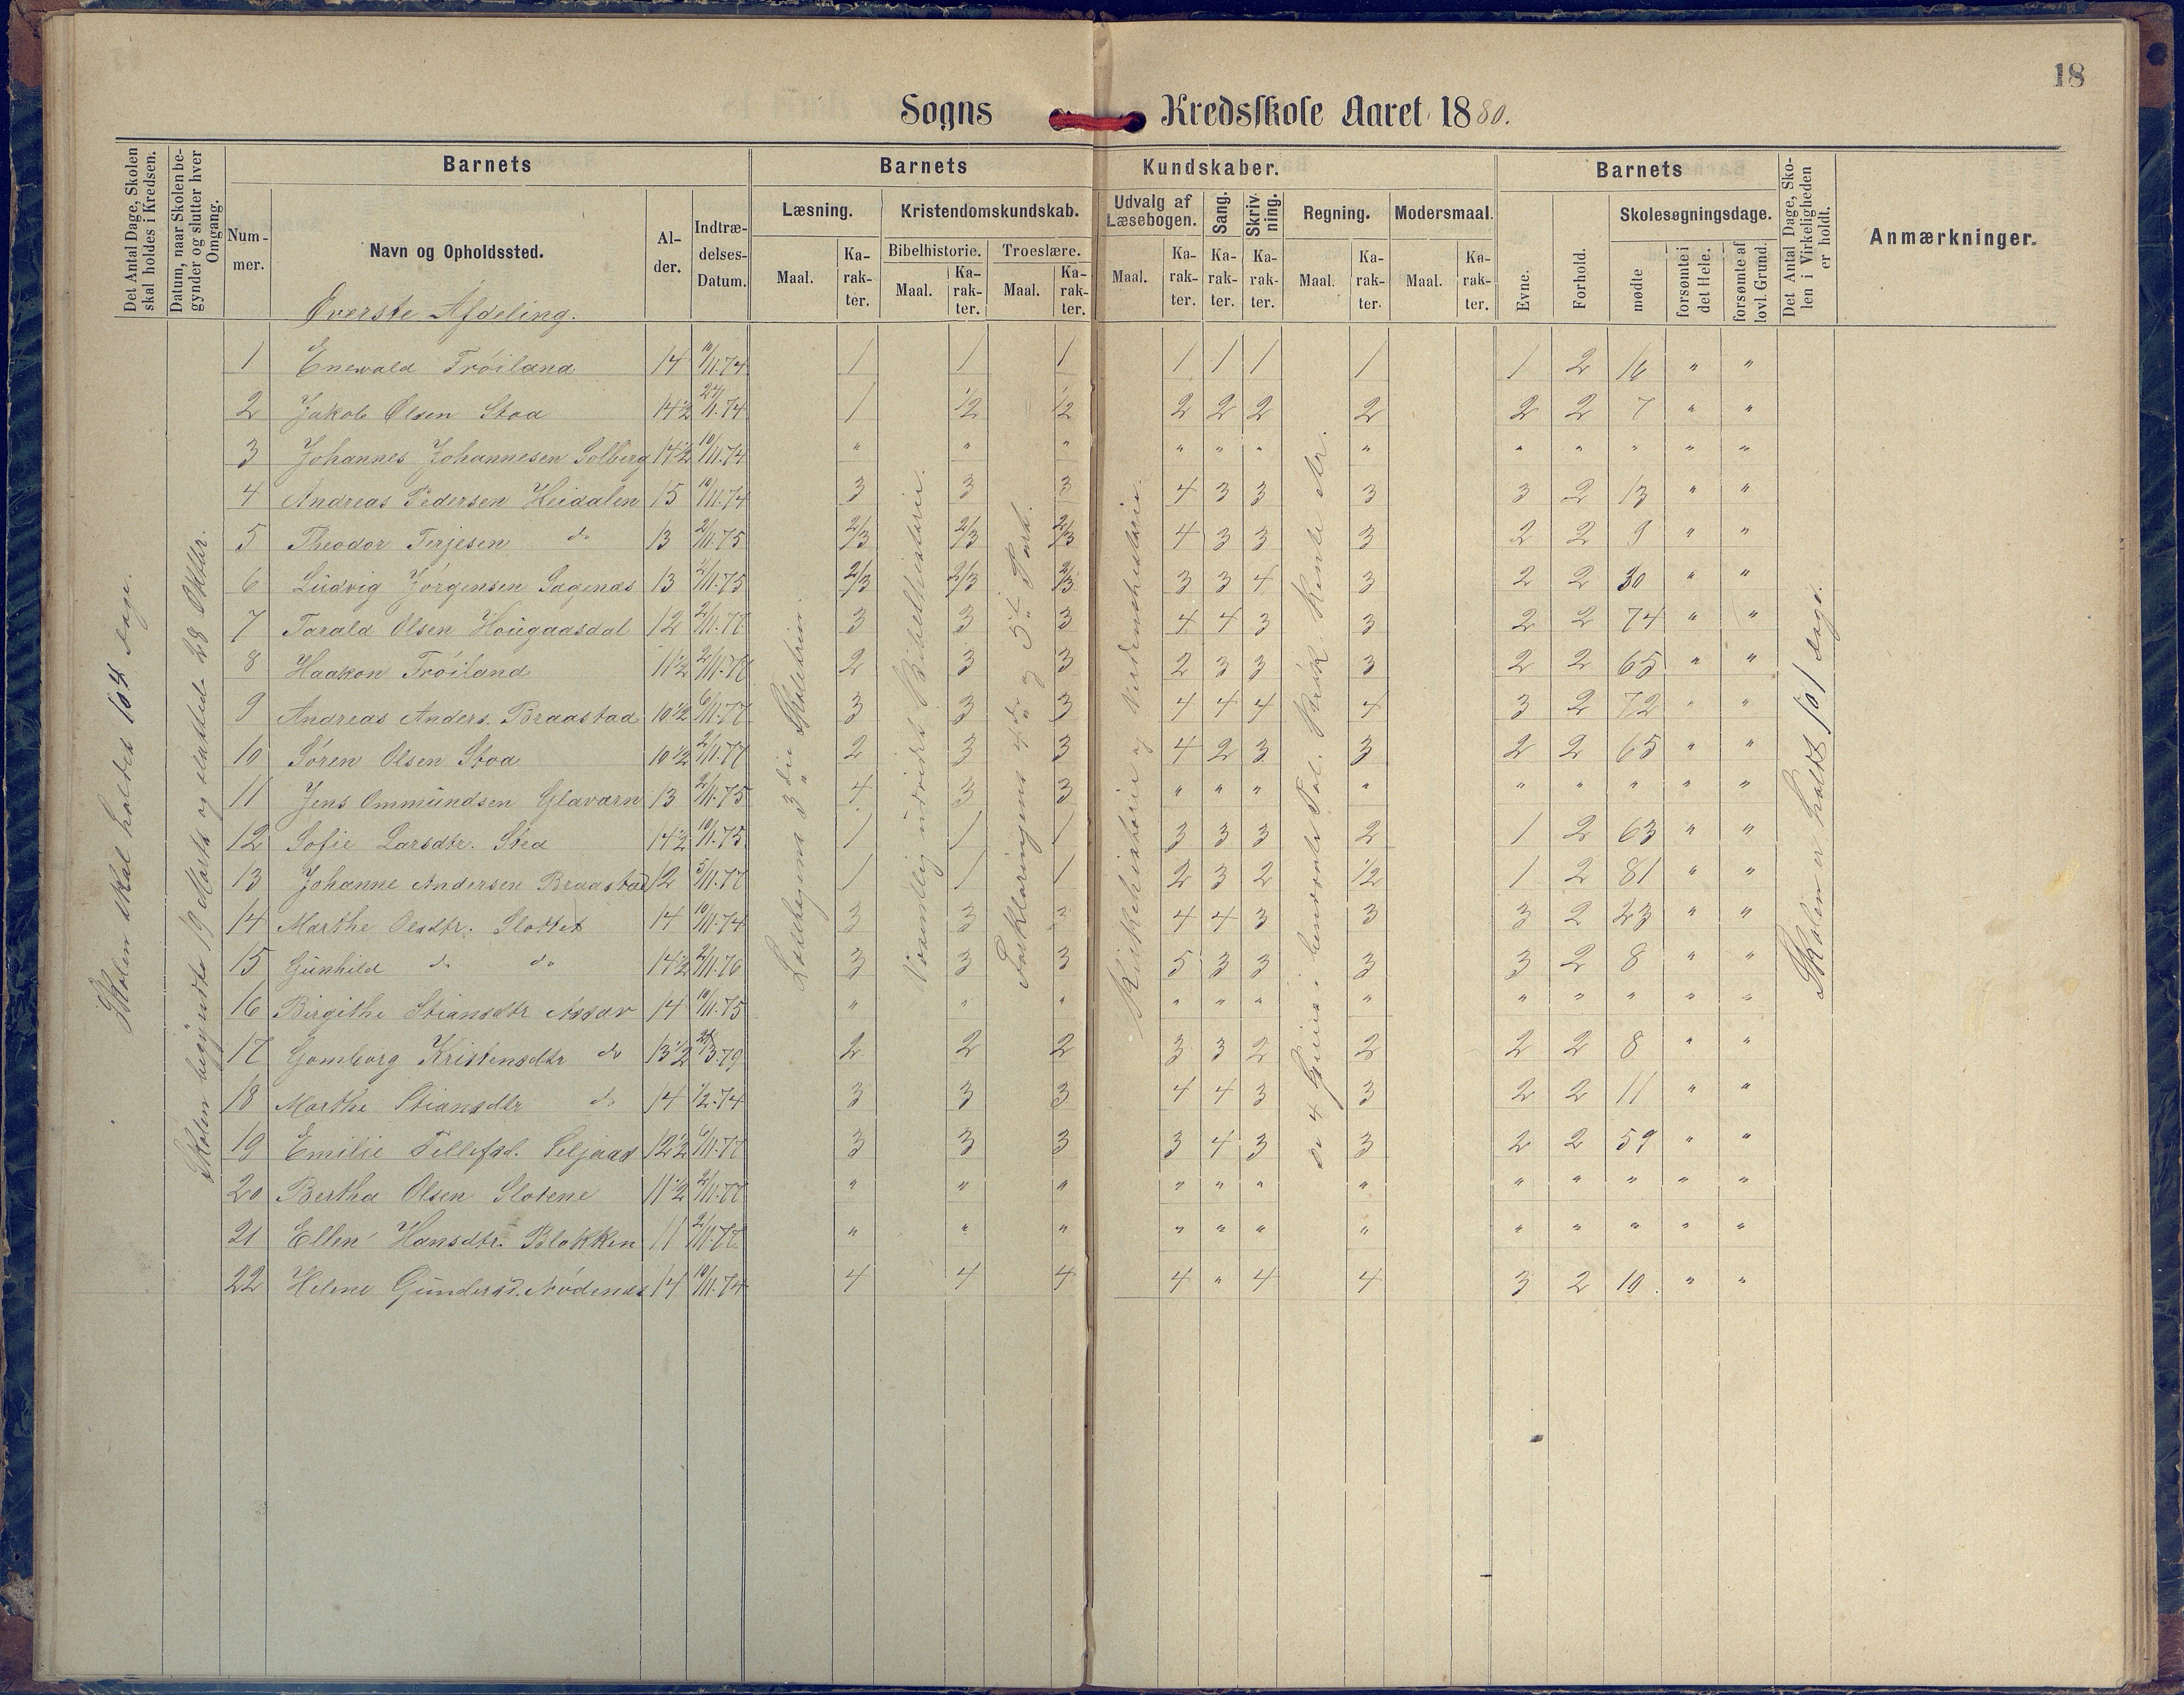 18
Sogns Kredsskole Aaret 1880.
Det Antal Dage, Skolen skal holdes i Kredsen.
Datum, naar Skolen begynder og slutter hver Omgang.
Barnets
Num-mer.
Navn og Opholdssted.
Al-der.
Indtræ-delses-Datum.
Barnets Kundskaber.
Læsning.
Maal.
Ka-rak-ter.
Kristendomskundskab.
Bibelhistorie.
Maal.
Ka-rak-ter.
Troeslære.
Maal.
Ka-rak-ter.
Udvalg af Læsebogen.
Maal.
Ka-rak-ter.
Sang.
Ka-rak-ter.
Skriv-ning.
Ka-rak-ter.
Regning.
Maal.
Ka-rak-ter.
Modersmaal.
Maal.
Ka-rak-ter.
Barnets
Evne.
Forhold.
Skolesøgningsdage.
mødte
forsømte i det Hele.
forsømte af lovl. Grund.
Det Antal Dage, Skolen i Virkeligheden er holdt.
Anmærkninger.
Øverste Afdeling.
Skolen skal holdes 104 Dage.
Skolen begyndte 19 Marts og sluttede 28 Oktbr.
Læsebogens 3die Skoletrin.
Væsentlig udvidet Bibelhistorie.
Forklaringens 4de og 5te Part.
Kirkehistorie og Verdenshistorie.
De 4 Specie i benævnte Tal. Prakt. Rente Ar.
Skolen er holdt 101 Dage.
1 Enevald Frøiland 14 10/11.74 1 1 1 1 1 1 1 1 2 16 " "
2 Jakob Olsen Stoa 14½ 24/11.74 1 1/2 1/2 2 2 2 2 2 2 7 " "
3 Johannes Johannesen Solberg 14½ 10/11.74 " " " " " " " " " " " "
4 Andreas Pedersen Heidalen 15 10/11.74 3 3 3 4 3 3 3 3 2 13 " "
5 Theodor Terjesen do 13 2/11.75 2/3 2/3 2/3 4 3 3 3 2 2 9 " "
6 Ludvig Jørgensen Sagenæs 13 2/11.75 2/3 2/3 2/3 3 3 4 3 2 2 30 " "
7 Tarald Olsen Hougaasdal 12 2/11.77 3 3 3 4 4 3 3 2 2 74 " "
8 Haakon Frøiland 11½ 2/11.77 2 3 3 2 3 3 3 2 2 65 " "
9 Andreas Anders. Braastad 10½ 6/11.77 3 3 3 4 4 4 4 3 2 72 " "
10 Søren Olsen Stoa 10½ 2/11.77 2 3 3 4 2 3 3 2 2 65 " "
11 Jens Ommundsen Glavarn 13 2/11.75 4 3 3 " " " " " " " " "
12 Sofie Larsdtr. Stea 14½ 10/11.75 1 1 1 3 3 3 2 1 2 63 " "
13 Johanne Andersen Braastad 12 5/11.77 1 1 1 2 3 2 1/2 1 2 81 " "
14 Marthe Olsdtr. Slottet 14 10/11.74 3 3 3 4 4 3 3 3 2 23 " "
15 Gunhild do do 14½ 2/11.76 3 3 3 5 3 3 3 3 2 8 " "
16 Birgithe Stiansdtr Assav 14 10/11.75 " " " " " " " " " " " "
17 Gomborg Kristensdtr do 13½ 2/3.79 2 2 2 3 3 2 2 2 2 8 " "
18 Marthe Stiansdtr do 14 1/2.74 3 3 3 4 4 3 3 2 2 11 " "
19 Emilie Tellefsd. Seljaas 12½ 6/11.77 3 3 3 3 4 3 3 2 2 59 " "
20 Bertha Olsen Slotene 11½ 2/11.77 " " " " " " " " " " " "
21 Ellen Hansdtr. Blakken 11 2/11.77 " " " " " " " " " " " "
22 Helene Gundersd. Nødenæs 14 10/11.74 4 4 4 4 " 4 4 3 2 10 " "